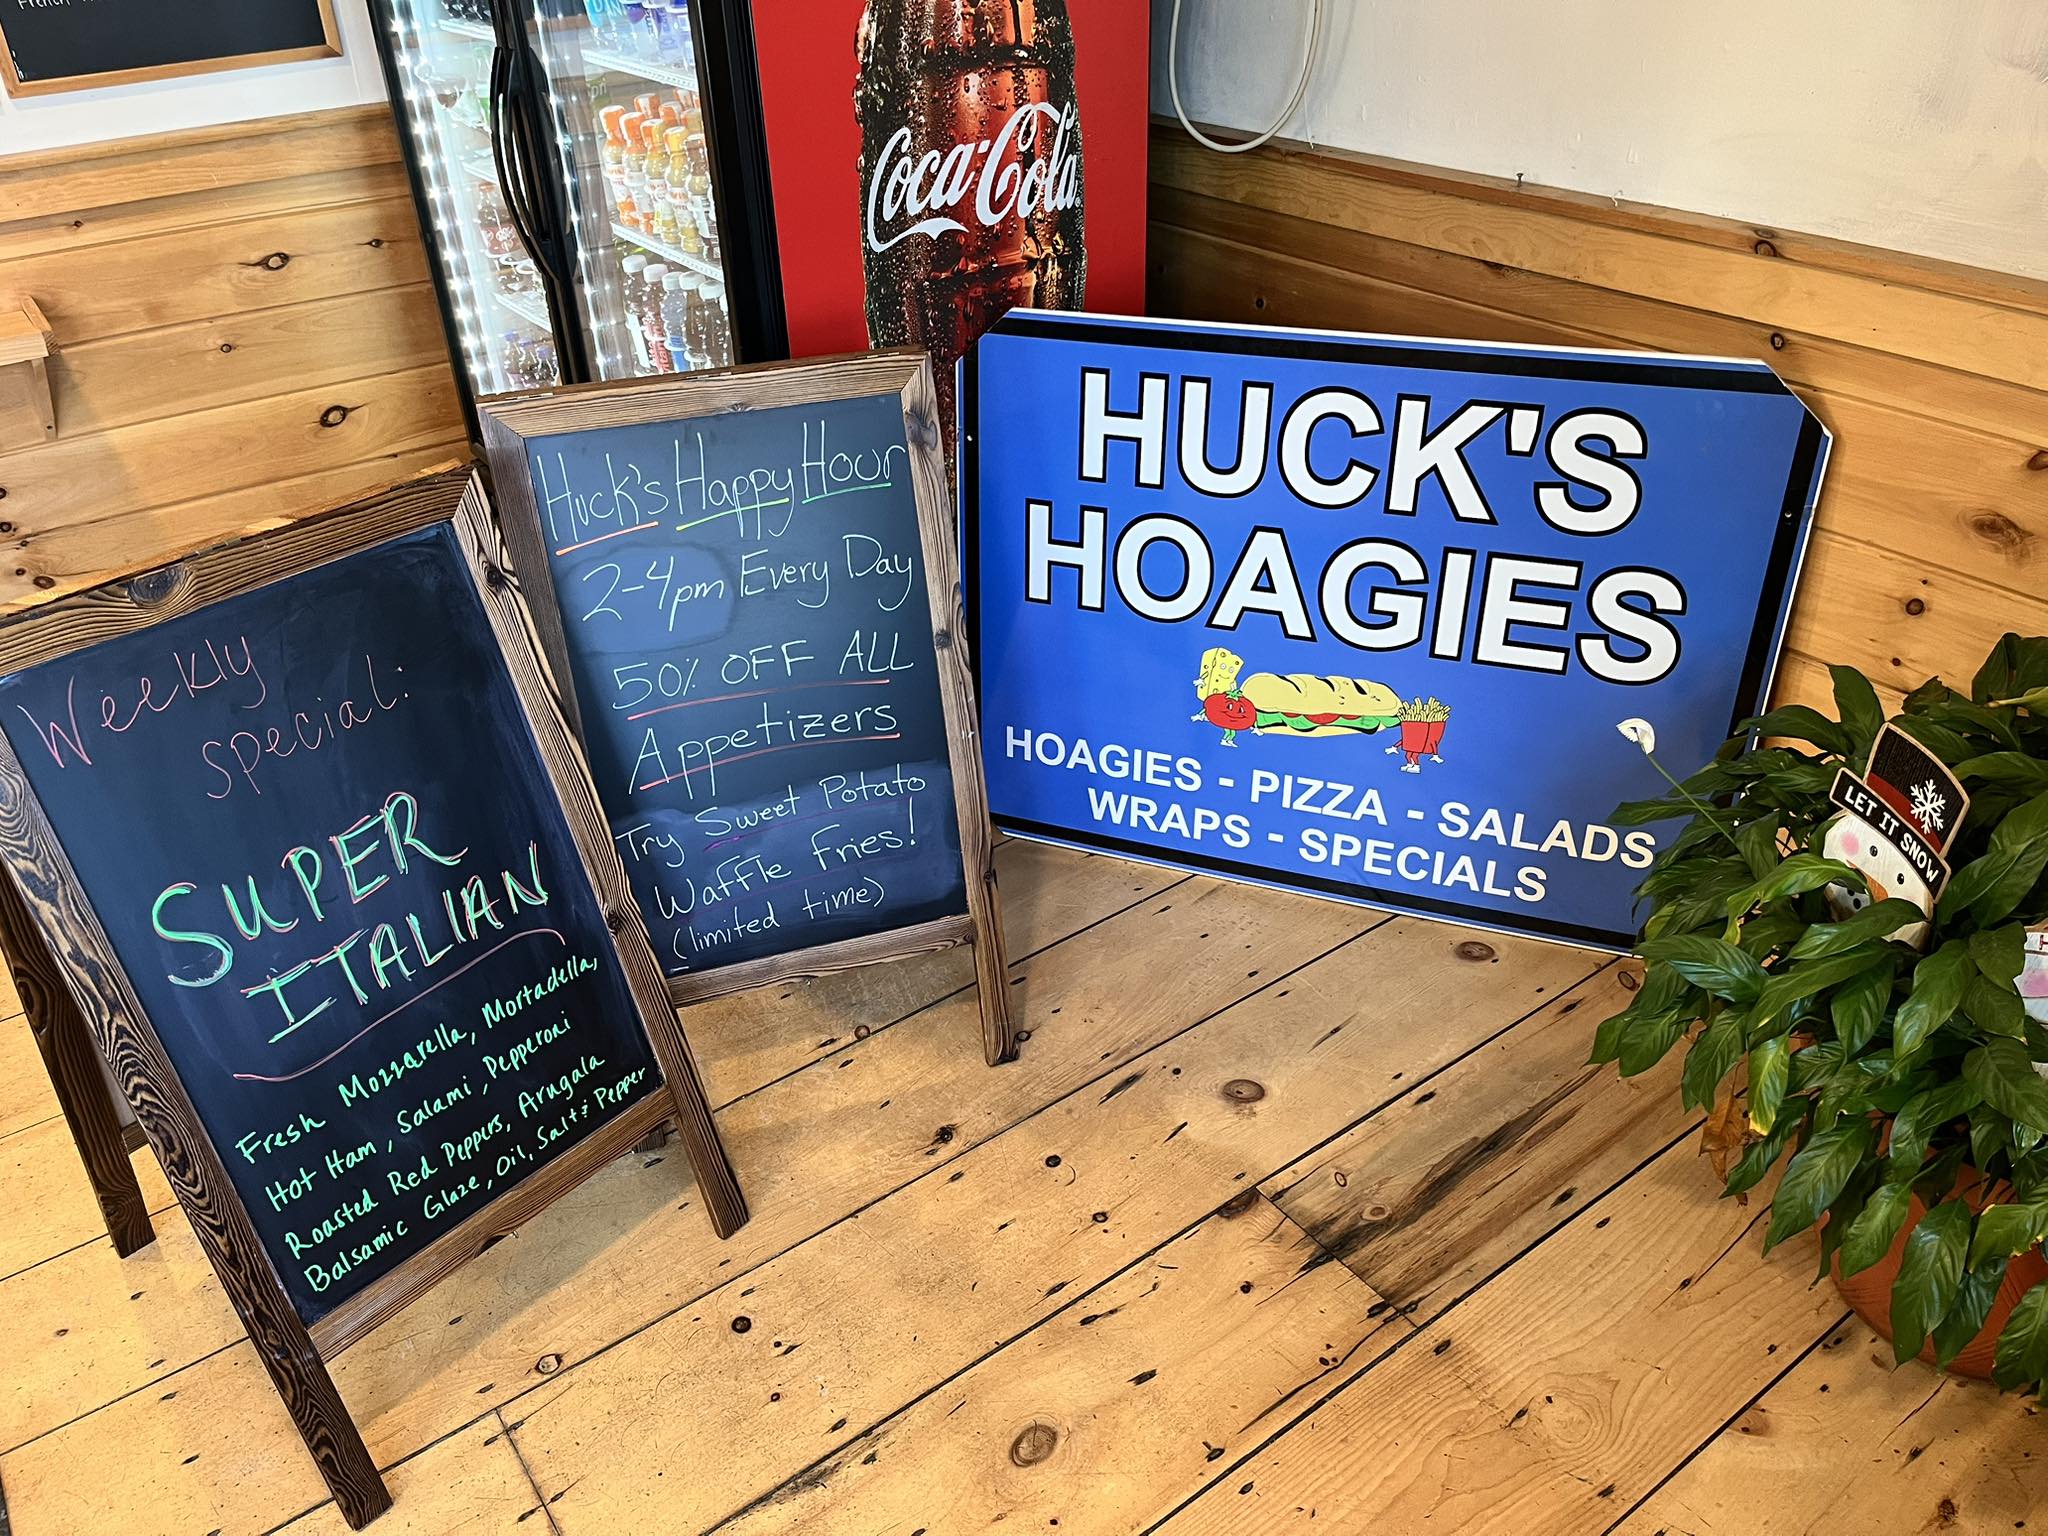 Coca-Cola
Weekly
special:
SUPER
ITALIAN
Fresh Mozzarella, Mortadella,
Hot Ham, Salami, Pepperoni
Roasted Red Peppers, Arugala
Balsamic Glaze, Oil, Salt & Pepper
Huck's Happy Hour
2-4pm Every Day
50% OFF ALL
Appetizers
Try Sweet Potato
Waffle Fries!
(limited time)
HUCK'S
HOAGIES
HOAGIES - PIZZA - SALADS
WRAPS - SPECIALS
LET IT SNOW